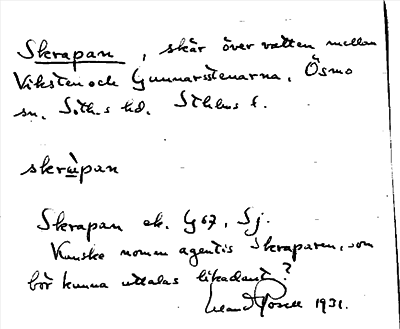 Skrapan, skär över vatten mellan
Viksten och Gunnarsstenarna, Ösmo
sn, Soth.s hd. Sthlms l.
skrùpan
Skrapan ek. G 67, Sj.
Kanske nomen agentis Skraparen, som
bör kunna uttalas likadant?
1931.